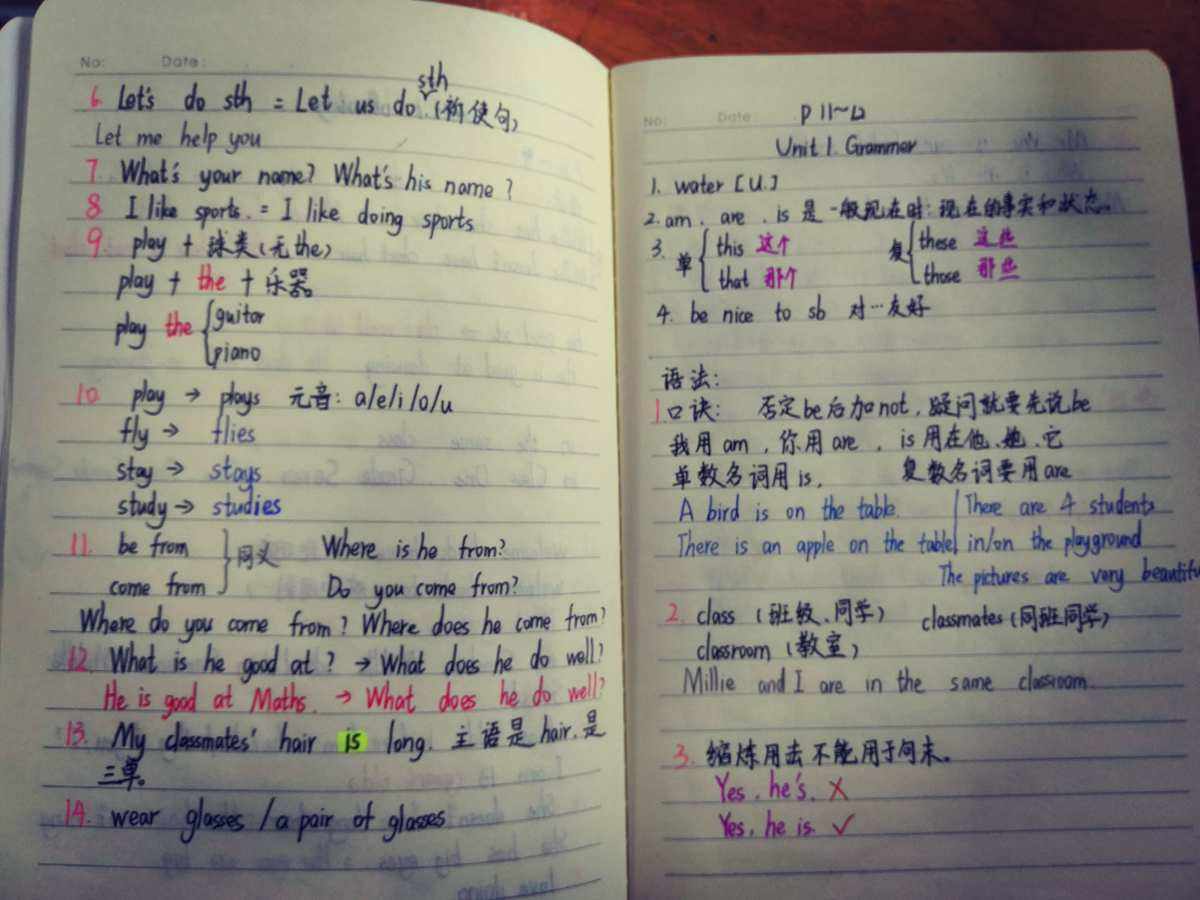 No: Date:
6. Let's do sth = Let us do sth (祈使句)
Let me help you
7. What's your name? What's his name?
8. I like sports. = I like doing sports
9. play + 球类(无the)
play + the + 乐器
play the { guitar
piano
10. play → plays 元音: a/e/i/o/u
fly → flies
stay → stays
study → studies
11. be from } 同义 Where is he from?
come from Do you come from?
Where do you come from? Where does he come from?
12. What is he good at? → What does he do well?
He is good at Maths. → What does he do well?
13. My classmates' hair is long. 主语是hair.是
三单。
14. wear glasses / a pair of glasses
No: Date P 11~12
Unit 1. Grammer
1. water [U.]
2. am . are . is 是一般现在时:现在的事实和状态。
3. 单 { this 这个 复 { these 这些
that 那个 those 那些
4. be nice to sb 对…友好
语法:
1.口诀: 否定be后加not, 疑问就要先说be
我用am, 你用are, is用在他、她、它
单数名词用is, 复数名词要用are
A bird is on the table. There are 4 students
There is an apple on the table in/on the playground
The pictures are very beautiful
2. class (班级、同学) classmates (同班同学)
classroom (教室)
Millie and I are in the same classroom.
3. 缩炼用去不能用于句末。
Yes, he's. ×
Yes, he is. ✓